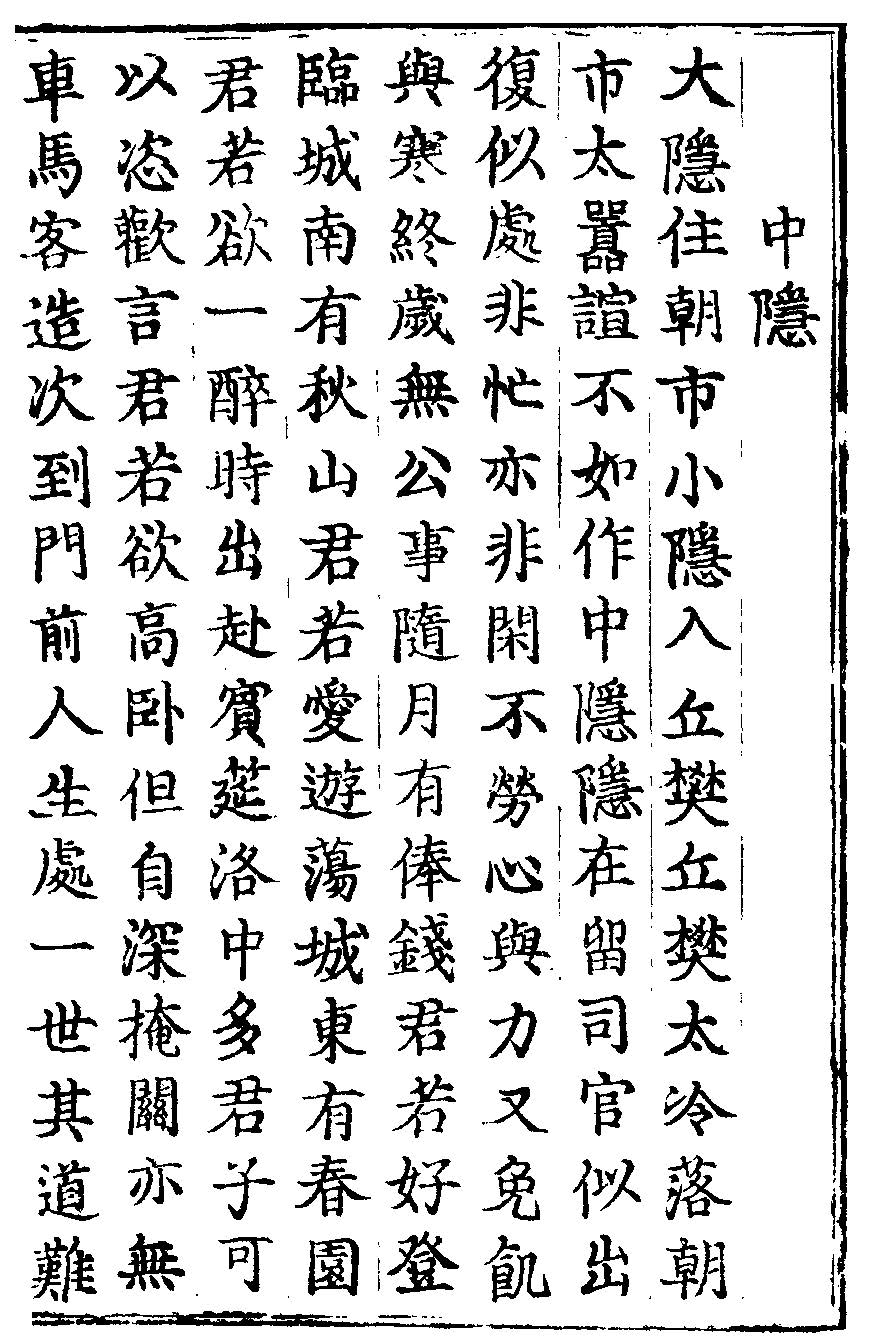 中隱
大隱住朝市小隱入丘樊丘樊太冷落朝
市太嚻諠不如作中隱隱在留司官似出
復似處非忙亦非閑不勞心與力又免飢
與寒終歲無公事隨月有俸錢君若好登
臨城南有秋山君若愛遊蕩城東有春園
君若欲一醉時出赴賓筵洛中多君子可
以恣歡言君若欲高卧但自深掩關亦無
車馬客造次到門前人生處一世其道難